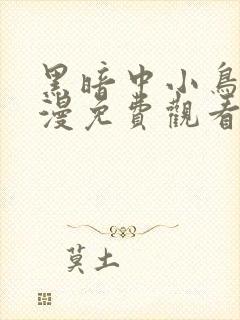 黑暗中小鳥
漫免費觀看
莫土